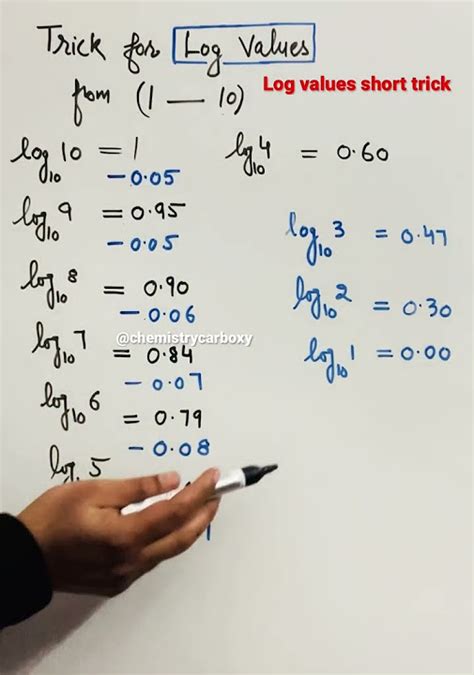 Trick for Log Values
from (1 — 10)
Log values short trick
log₁₀10 = 1
- 0.05
log₁₀9 = 0.95
- 0.05
log₁₀8 = 0.90
- 0.06
@chemistrycarboxy
log₁₀7 = 0.84
- 0.07
log₁₀6 = 0.79
- 0.08
log 5
log₁₀4 = 0.60
log₁₀3 = 0.47
log₁₀2 = 0.30
log₁₀1 = 0.00